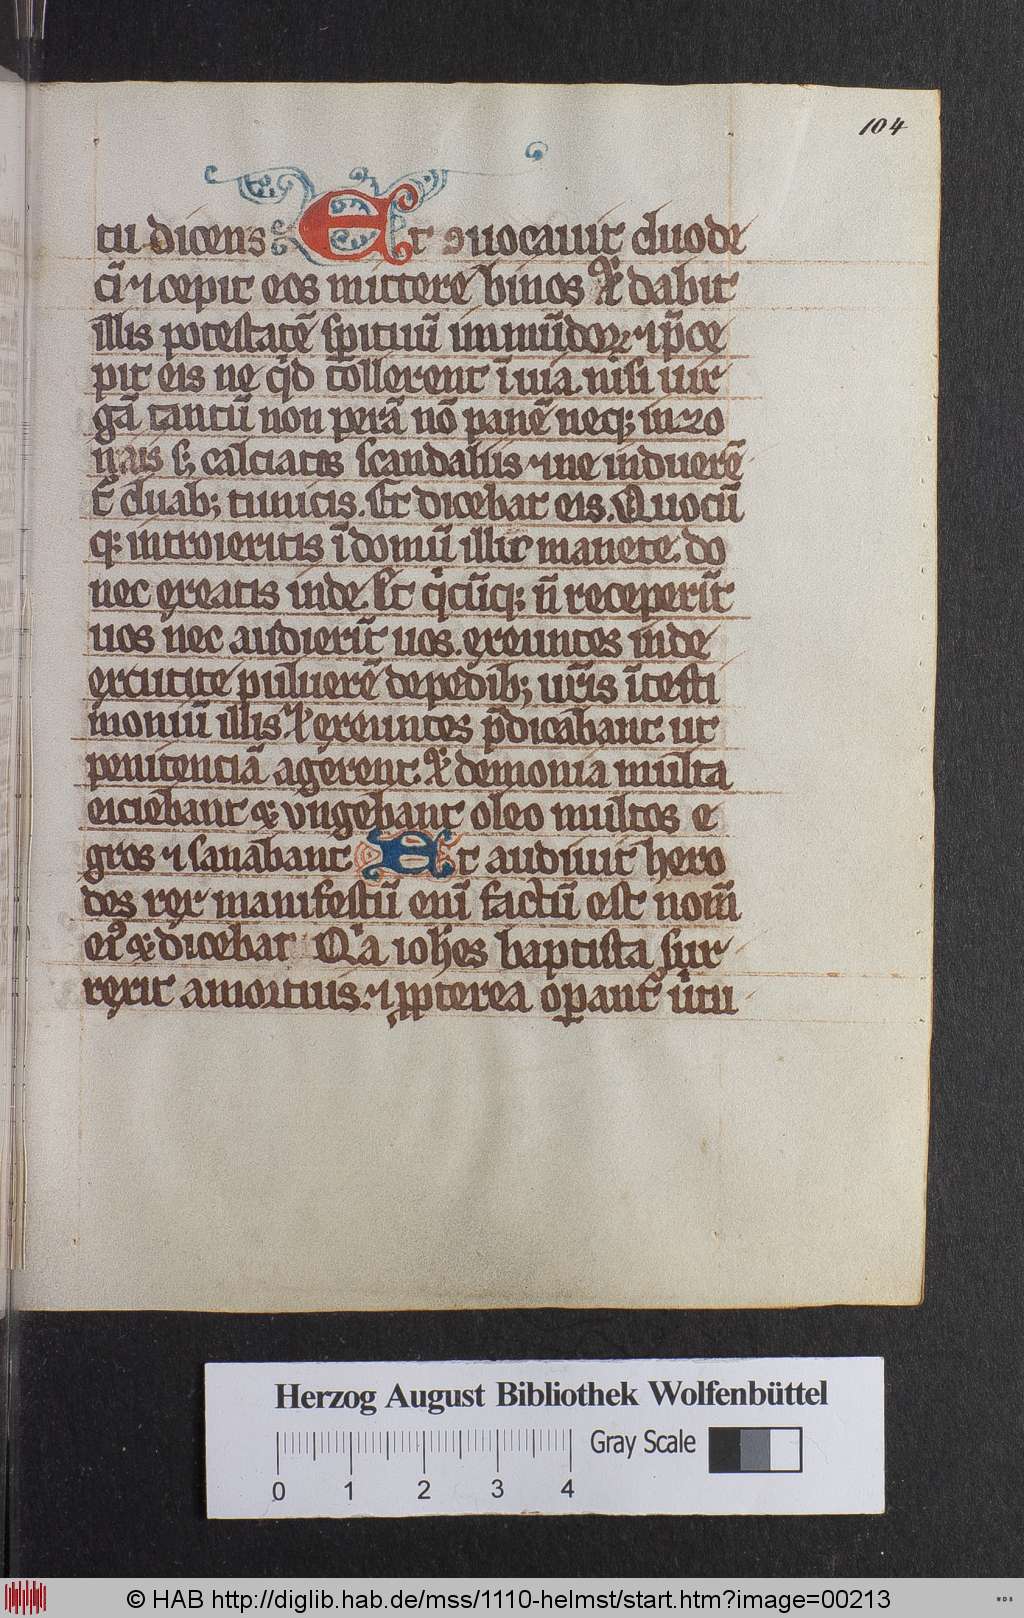 104
tu dicens Et ꝯuocauit duode
cī ⁊ cepit eos mittere binos & dabit
illis potestatē sp̄ituū immūdoꝝ ⁊ p̄ce
pit eis ne qͥd tollerent ī uia nisi uir
gā tantū non perā nō panē neqꝫ in zo
nais sꝫ calciatos scandaliis ⁊ ne induerē
t̄ duabꝫ tunicis. Et dicebat eis. Quocū
qꝫ introieritis ī domū illic manete do
nec exeatis inde. Et qͥcūqꝫ n̄ receperīt
uos nec audierīt uos. exeuntes inde
excutite puluerē de pedibꝫ ur̄is ī testi
moniū illis. Et exeuntes p̄dicabant. ut
penitenciā agerent. & demonia multa
eiciebant & vngebant oleo multos e
gros ⁊ sanabant Et audiuit hero
des rex manifestū enī factū est nom̄
eiꝰ & dicebat Qͥa ioh̄es baptista sur
rexit a mortuis. ⁊ ꝓpterea oꝑant᷑ ūtu
Herzog August Bibliothek Wolfenbüttel
Gray Scale
0 1 2 3 4
© HAB http://diglib.hab.de/mss/1110-helmst/start.htm?image=00213